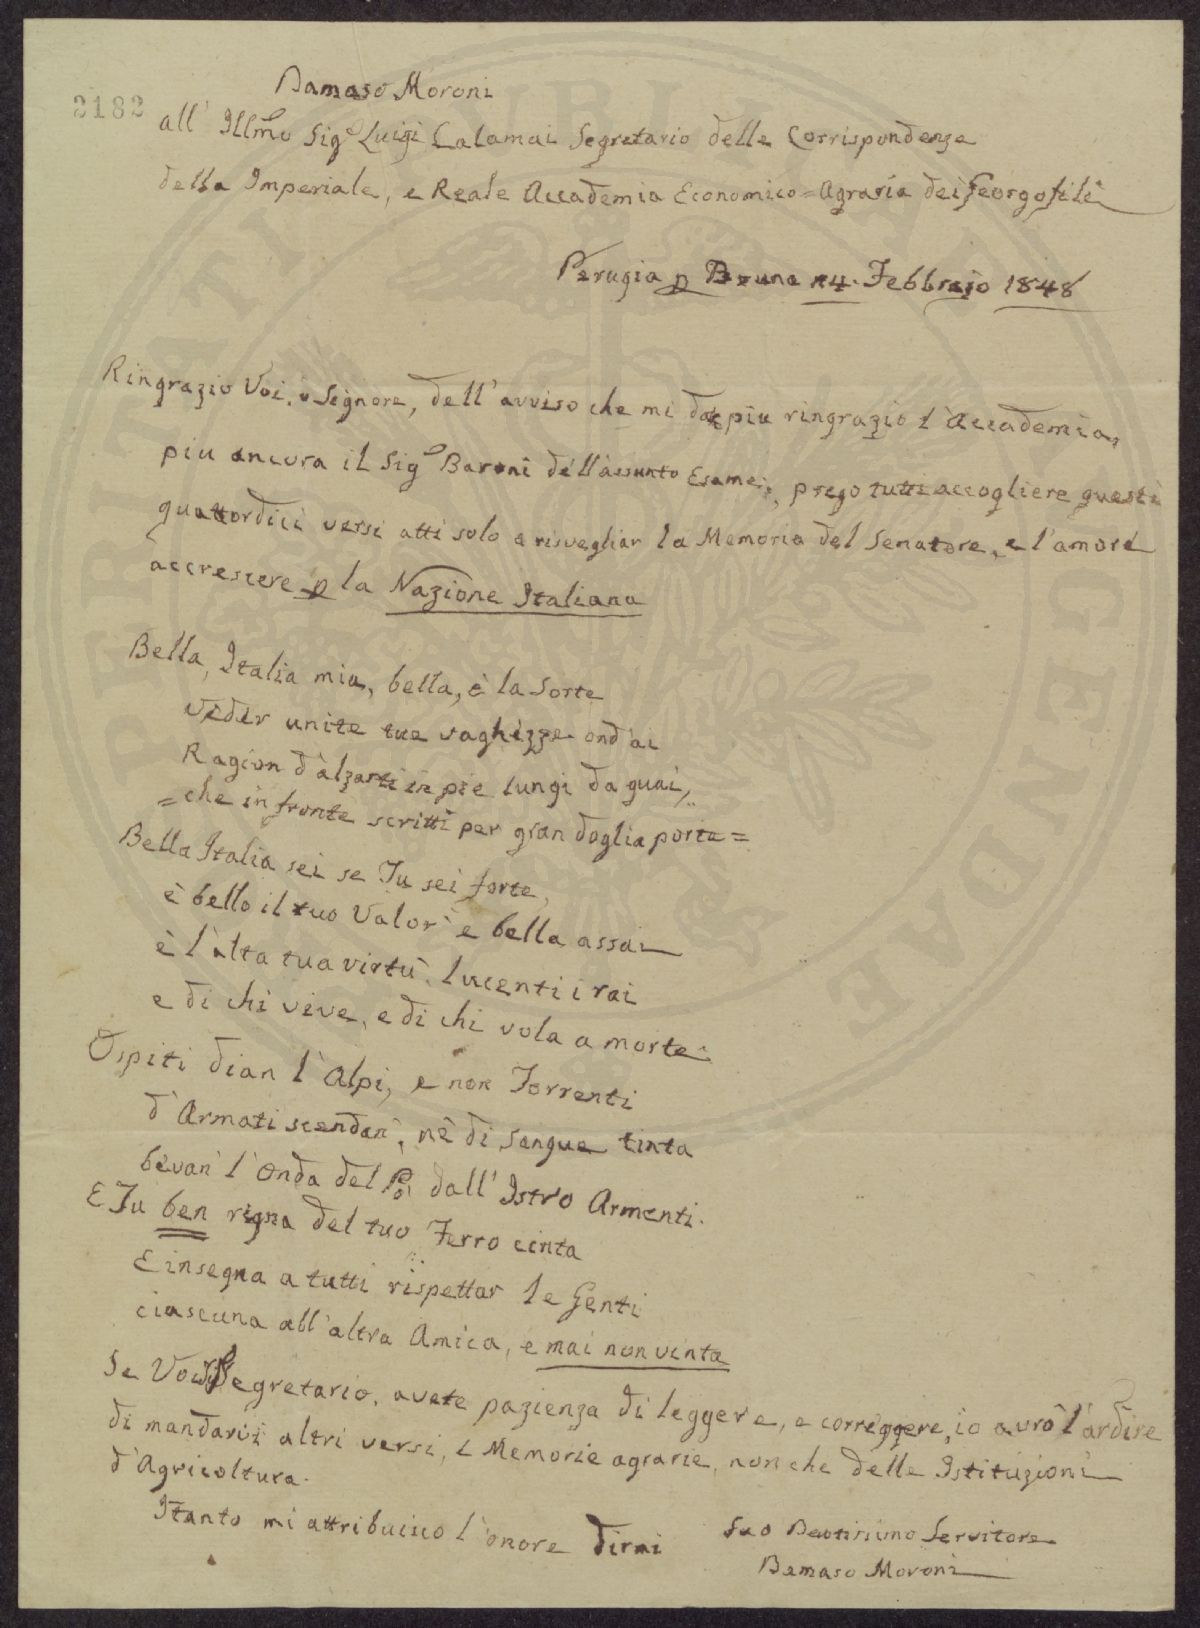 Damaso Moroni
2182
all' Illmo Sig.e Luigi Calamai Segretario delle Corrispondenze
della Imperiale, e Reale Accademia Economico=Agraria dei Georgofili
Perugia p Bruna 14. Febbrajo 1848
Ringrazio Voi, o Signore, dell'avviso che mi date più ringrazio l'Accademia,
piu ancora il Sig.e Baroni dell'assunto Esame, prego tutti accogliere questi
quattordici versi atti solo a risvegliar la Memoria del Senatore, e l'amore
accrescere p la Nazione Italiana
Bella, Italia mia, bella, è la sorte
veder unite tue vaghezze ond'ai
Ragion d'alzarti in piè lungi da guai,
=che in fronte scritti per gran doglia porte=
Bella Italia sei se Tu sei forte,
è bello il tuo Valor' e bella assai
è l'alta tua virtù, lucenti i rai
e di chi vive, e di chi vola a morte.
Ospiti dian l'Alpi, e non Torrenti
d'Armati scendan', nè di sangue tinta
bevan' l'onda del Pò dall'Istro Armenti.
E Tu ben regna del tuo Ferro cinta
E insegna a tutti rispettar le Genti
ciascuna all'altra Amica, e mai non vinta
Se Voi Segretario, avete pazienza di leggere, e correggere, io avrò l'ardire
di mandarvi altri versi, e Memorie agrarie, non che delle Istituzioni
d'Agricoltura.
Itanto mi attribuisco l'onore dirmi
Suo Devotissimo Servitore
Damaso Moroni
BIBLIOTHECA